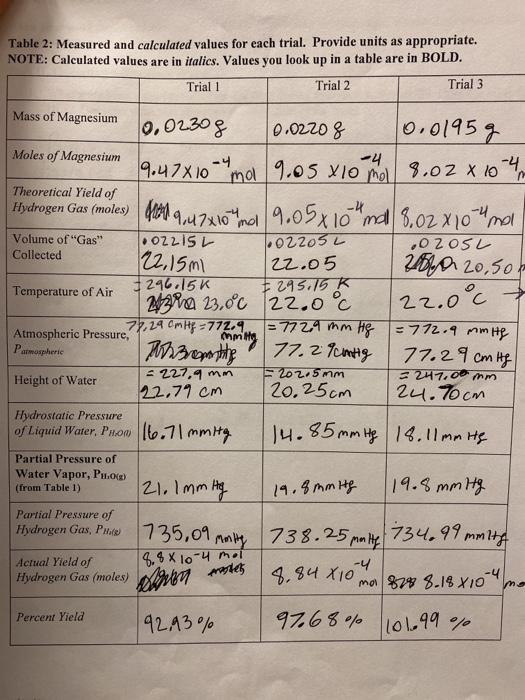 Table 2: Measured and calculated values for each trial. Provide units as appropriate.
NOTE: Calculated values are in italics. Values you look up in a table are in BOLD.
Trial 1 Trial 2 Trial 3
Mass of Magnesium 0.0230g 0.0220g 0.0195g
Moles of Magnesium 9.47 X 10⁻⁴ mol 9.05 X 10⁻⁴ mol 8.02 X 10⁻⁴
Theoretical Yield of
Hydrogen Gas (moles) 9.47x10⁻⁴mol 9.05x10⁻⁴mol 8.02x10⁻⁴mol
Volume of "Gas" .02215L .02205L .0205L
Collected 22.15ml 22.05 20.50
= 296.15K = 295.15 K
Temperature of Air 23.0°C 22.0°C 22.0°C →
77.29 cmHg = 772.9 mmHg = 772.9 mm Hg = 772.9 mmHg
Atmospheric Pressure,
Patmospheric 77.29cmHg 77.29 cm Hg
= 227.9 mm = 202.5mm = 247.00 mm
Height of Water 22.79 cm 20.25cm 24.70cm
Hydrostatic Pressure
of Liquid Water, PH₂O(l) 16.71 mmHg 14.85 mm Hg 18.11 mm Hg
Partial Pressure of
Water Vapor, PH₂O(g)
(from Table 1) 21.1 mm Hg 19.8 mm Hg 19.8 mmHg
Partial Pressure of
Hydrogen Gas, PH₂(g) 735.09 mmHg 738.25 mmHg 734.99 mmHg
Actual Yield of 8.8 X 10⁻⁴ mol
Hydrogen Gas (moles) 8.84 X10⁻⁴ mol 8.18 X10⁻⁴
Percent Yield 92.93% 97.68% 101.99 %